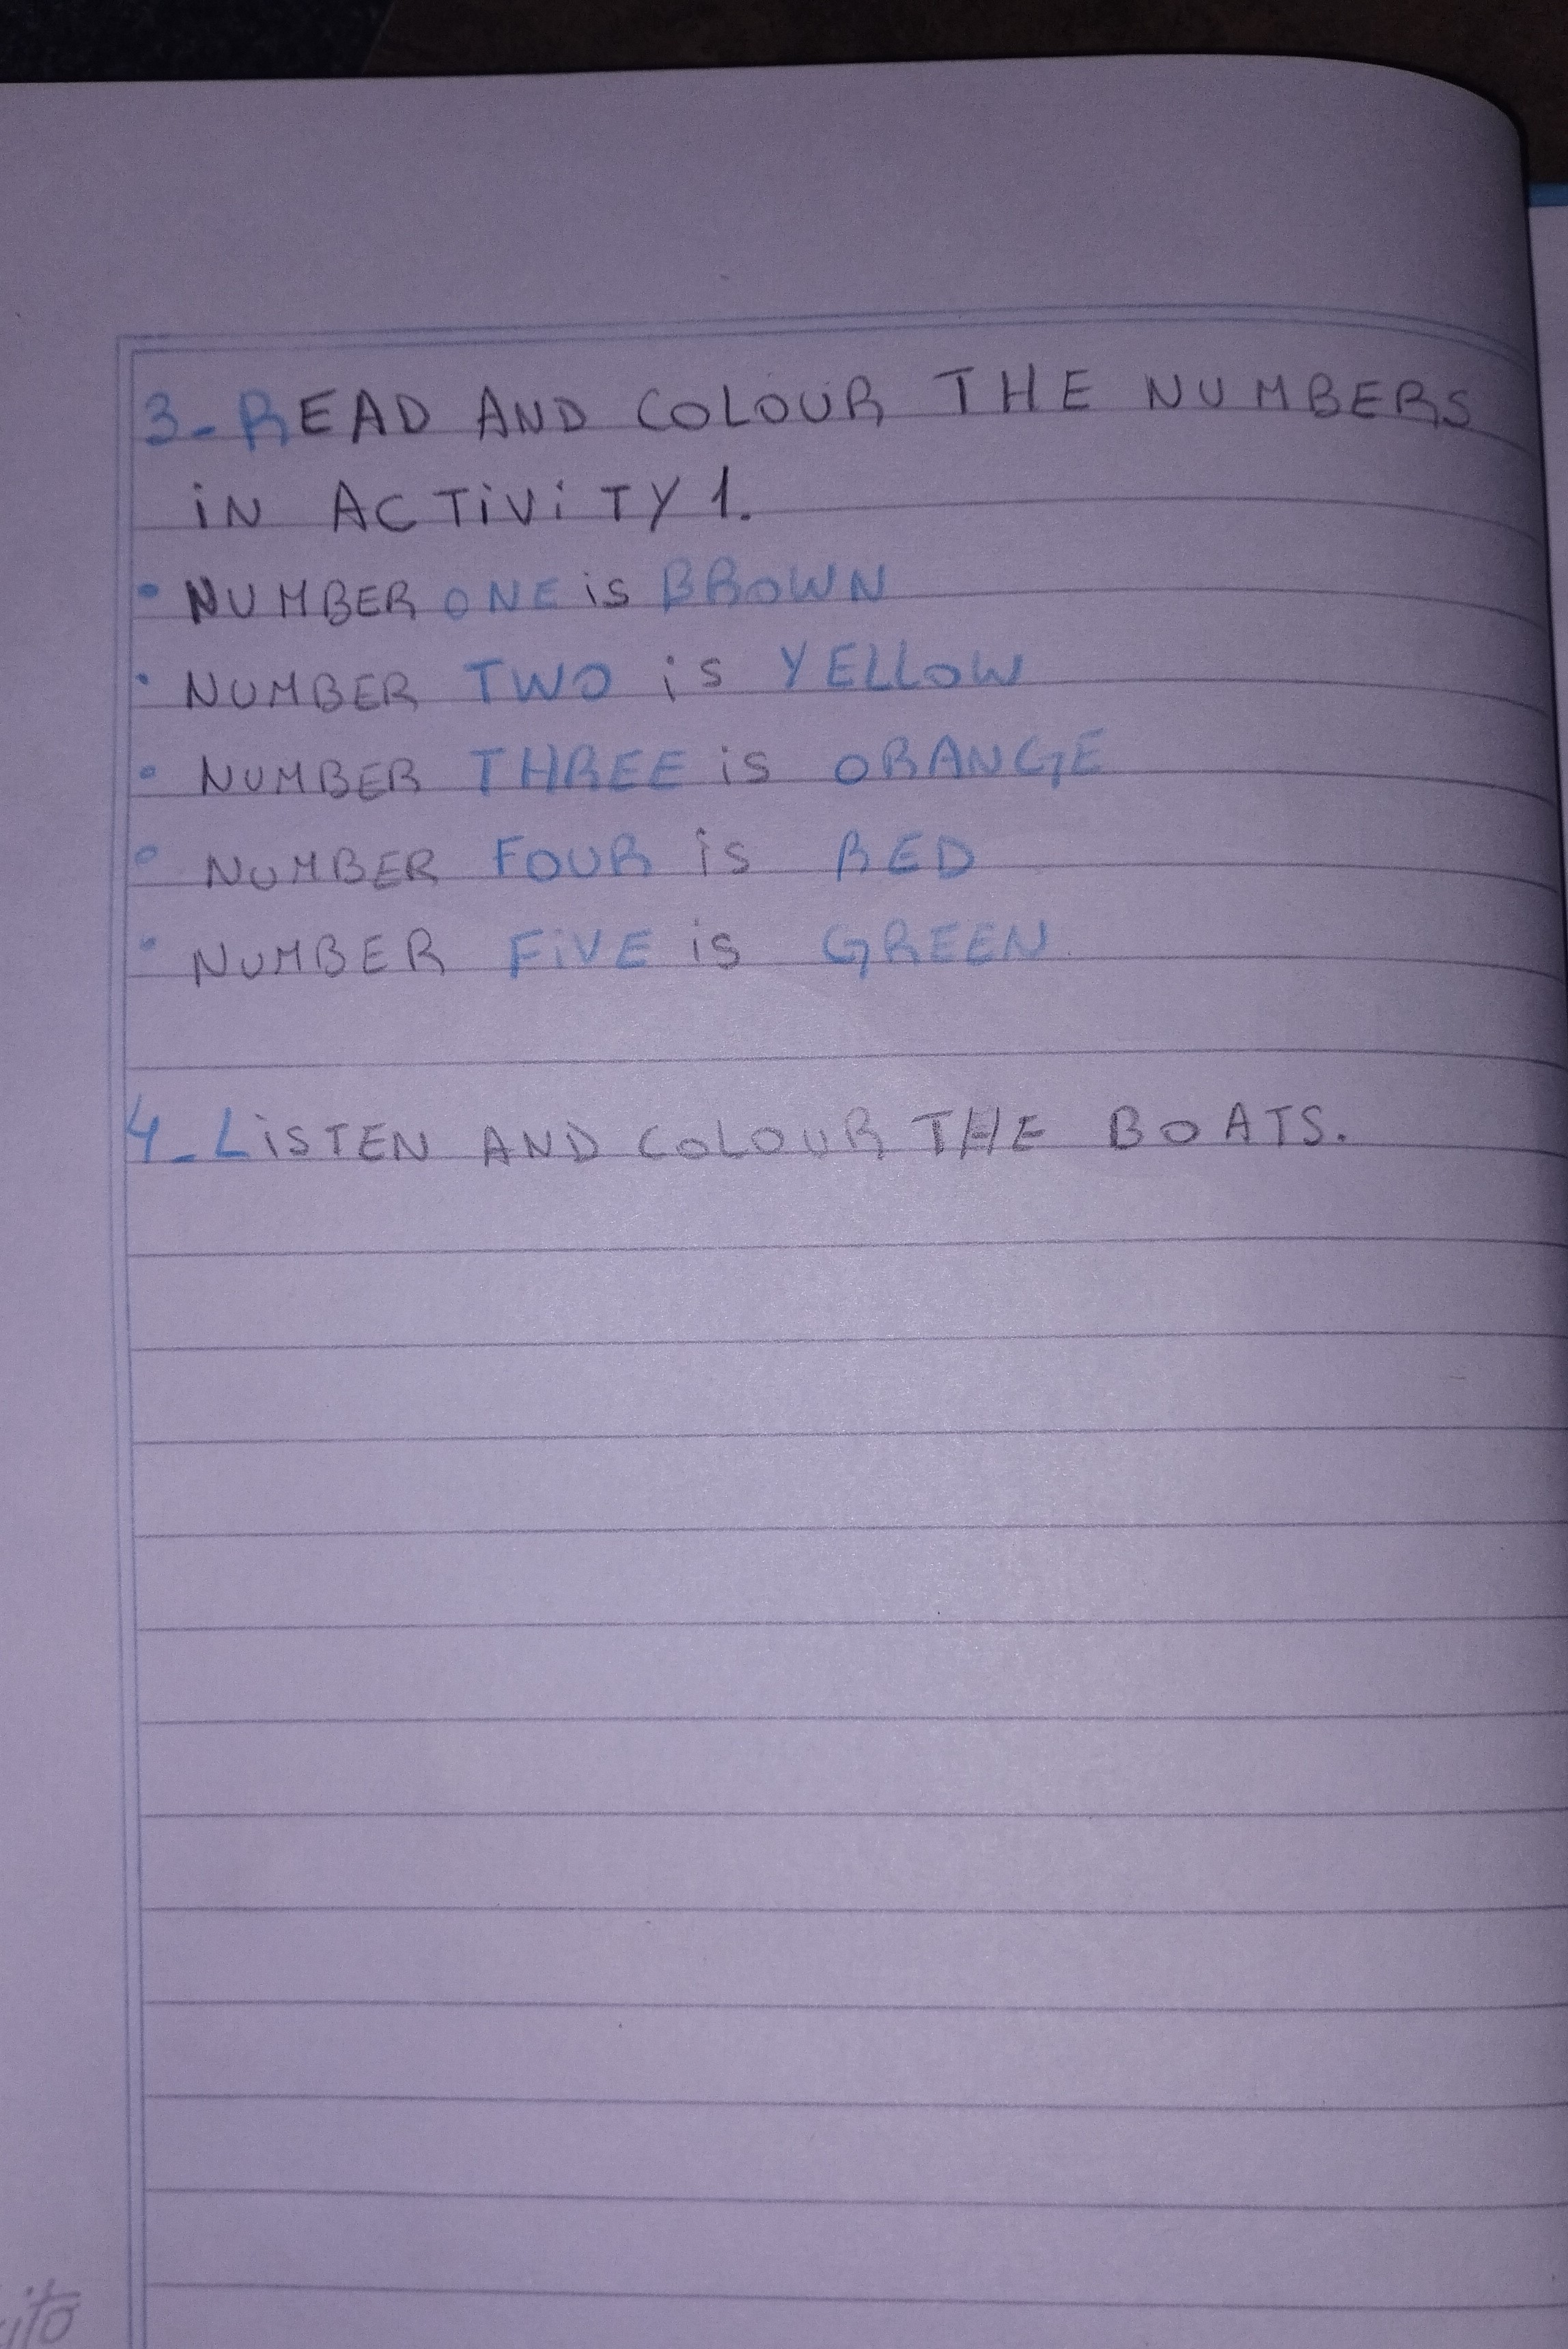 3-READ AND COLOUR THE NUMBERS
iN ACTiViTY 1.
• NUMBER ONE is BROWN
• NUMBER TWO is YELLOW
• NUMBER THREE is ORANGE
• NUMBER FOUR is RED
• NUMBER FiVE is GREEN.
4-LiSTEN AND COLOUR THE BOATS.